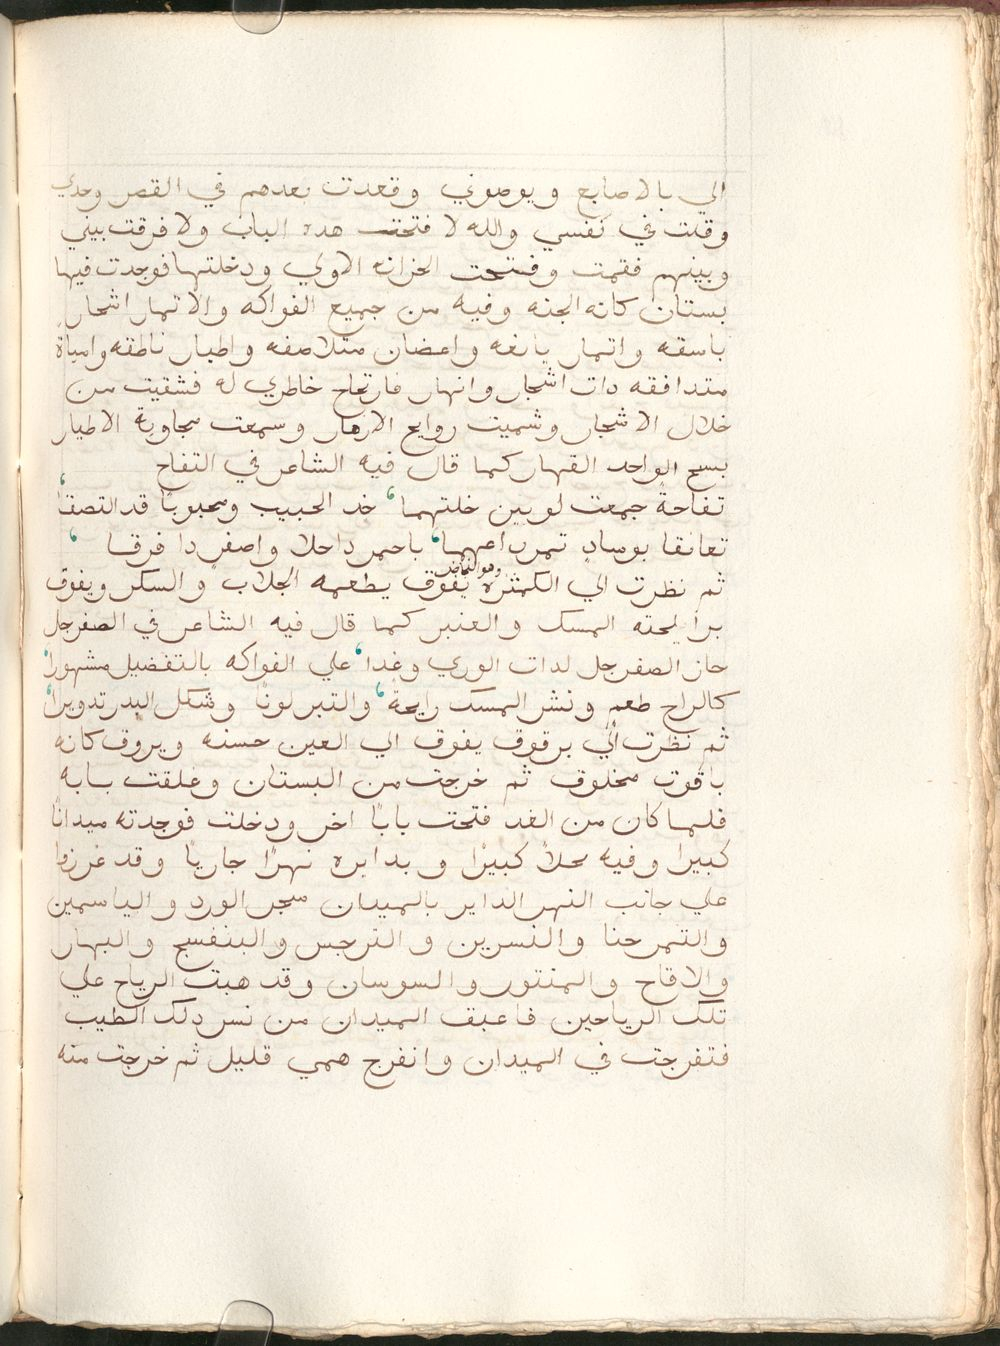 الي بالاصابع ويوصوني وقعدت بعدهم في القصر وحدي
وقلت في نفسي والله لا فتحت هده الباب ولا فرقت بيني
وبينهم فقمت وفتحت الخزانه الاولي ودخلتها فوجدت فيها
بستان كانه الجنه وفيه من جميع الفواكه والاتمار اشجار
باسقه واتمار يانعه واغضان متلاصفه واطيار ناطقه وامياة
متدافقه دات اشجار وانهار فارتحاح خاطري له فشقيت من
خلال الاشجار وشميت روايح الازهار وسمعت مجاوبة الاطيار
بسبح الواحد القهار كما قال فيه الشاعر في التفاح
تفاحةً جمعت لوبين خلتهما خد الحبيب ومحبوبًا قد التصقا
تعانقا بوسادٍ باحمر داحلا واصفر دا فرقا
ثم نظرت الي الكمثره وهو النجاض يفوق بطعمه الجلاب والسكر ويفوق
برايحته المسك والعنبر كما قال فيه الشاعر في الصفرجل
حاز الصفرجل لدات الوري وغدا علي الفواكه بالتفضيل مشهورا
كالراح طعمٍ ونشر المسك رايحةً والتبر لونًا وشكل البدر تدويرا
ثم نظرت الي برقوق يفوق الي العين حسنه ويروق كانه
باقوت مخلوف ثم خرجت من البستان وغلقت بابه
فلما كان من الغد فتحت بابًا اخر ودخلت فوجدته ميدانًا
كبيرا وفيه محلاً كبيرًا وبدايره نهرًا جاريًا وقد غرزوا
علي جانب النهر الداير بالميدان سجر الورد والياسمين
والتمرحنا والنسرين والنرجس والبنفسج والبهار
والاقاح والمنتور والسوسان وقد هبت الرياح علي
تلك الرياحين فاعبق الميدان من نسر دلك الطيب
فتفرجت في الميدان وانفرج همي قليل ثم خرجت منه